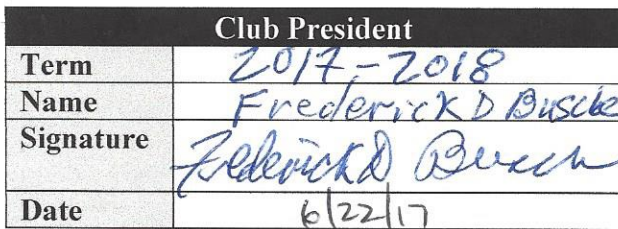 Club President
Term 2017-2018
Name Frederick D Busche
Signature Frederick D Busch
Date 6/22/17